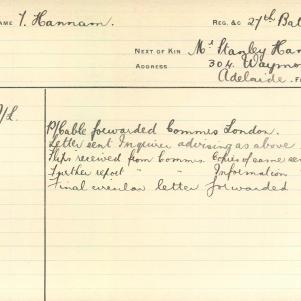 NAME T. Hannam. REG. &C 27th Bat
NEXT OF KIN Mr Stanley Han
ADDRESS 304 Waymo
Adelaide.
P/Cable forwarded Commrs London.
Letter sent Inquirer advising as above
Slips received from Commrs. Copies of same sen
Further report " " Information "
Final circular letter forwarded